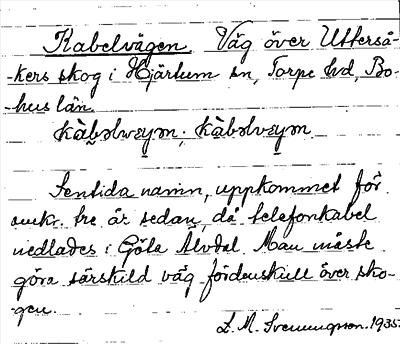 Kabelvägen. Väg över Utterså-
-kers skog i Hjärtum sn, Torpe hd, Bo-
-hus län.
Sentida namn, uppkommet för
omkr. tre år sedan, då telefonkabel
nedlades i Göta Älvdal. Man måste
göra särskild väg fördenskull över sko-
-gen.
L. M. Svenungsson. 1935.